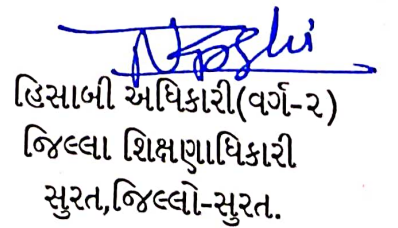 હિસાબી અધિકારી(વર્ગ-૨)
જિલ્લા શિક્ષણાધિકારી
સુરત,જિલ્લો-સુરત.